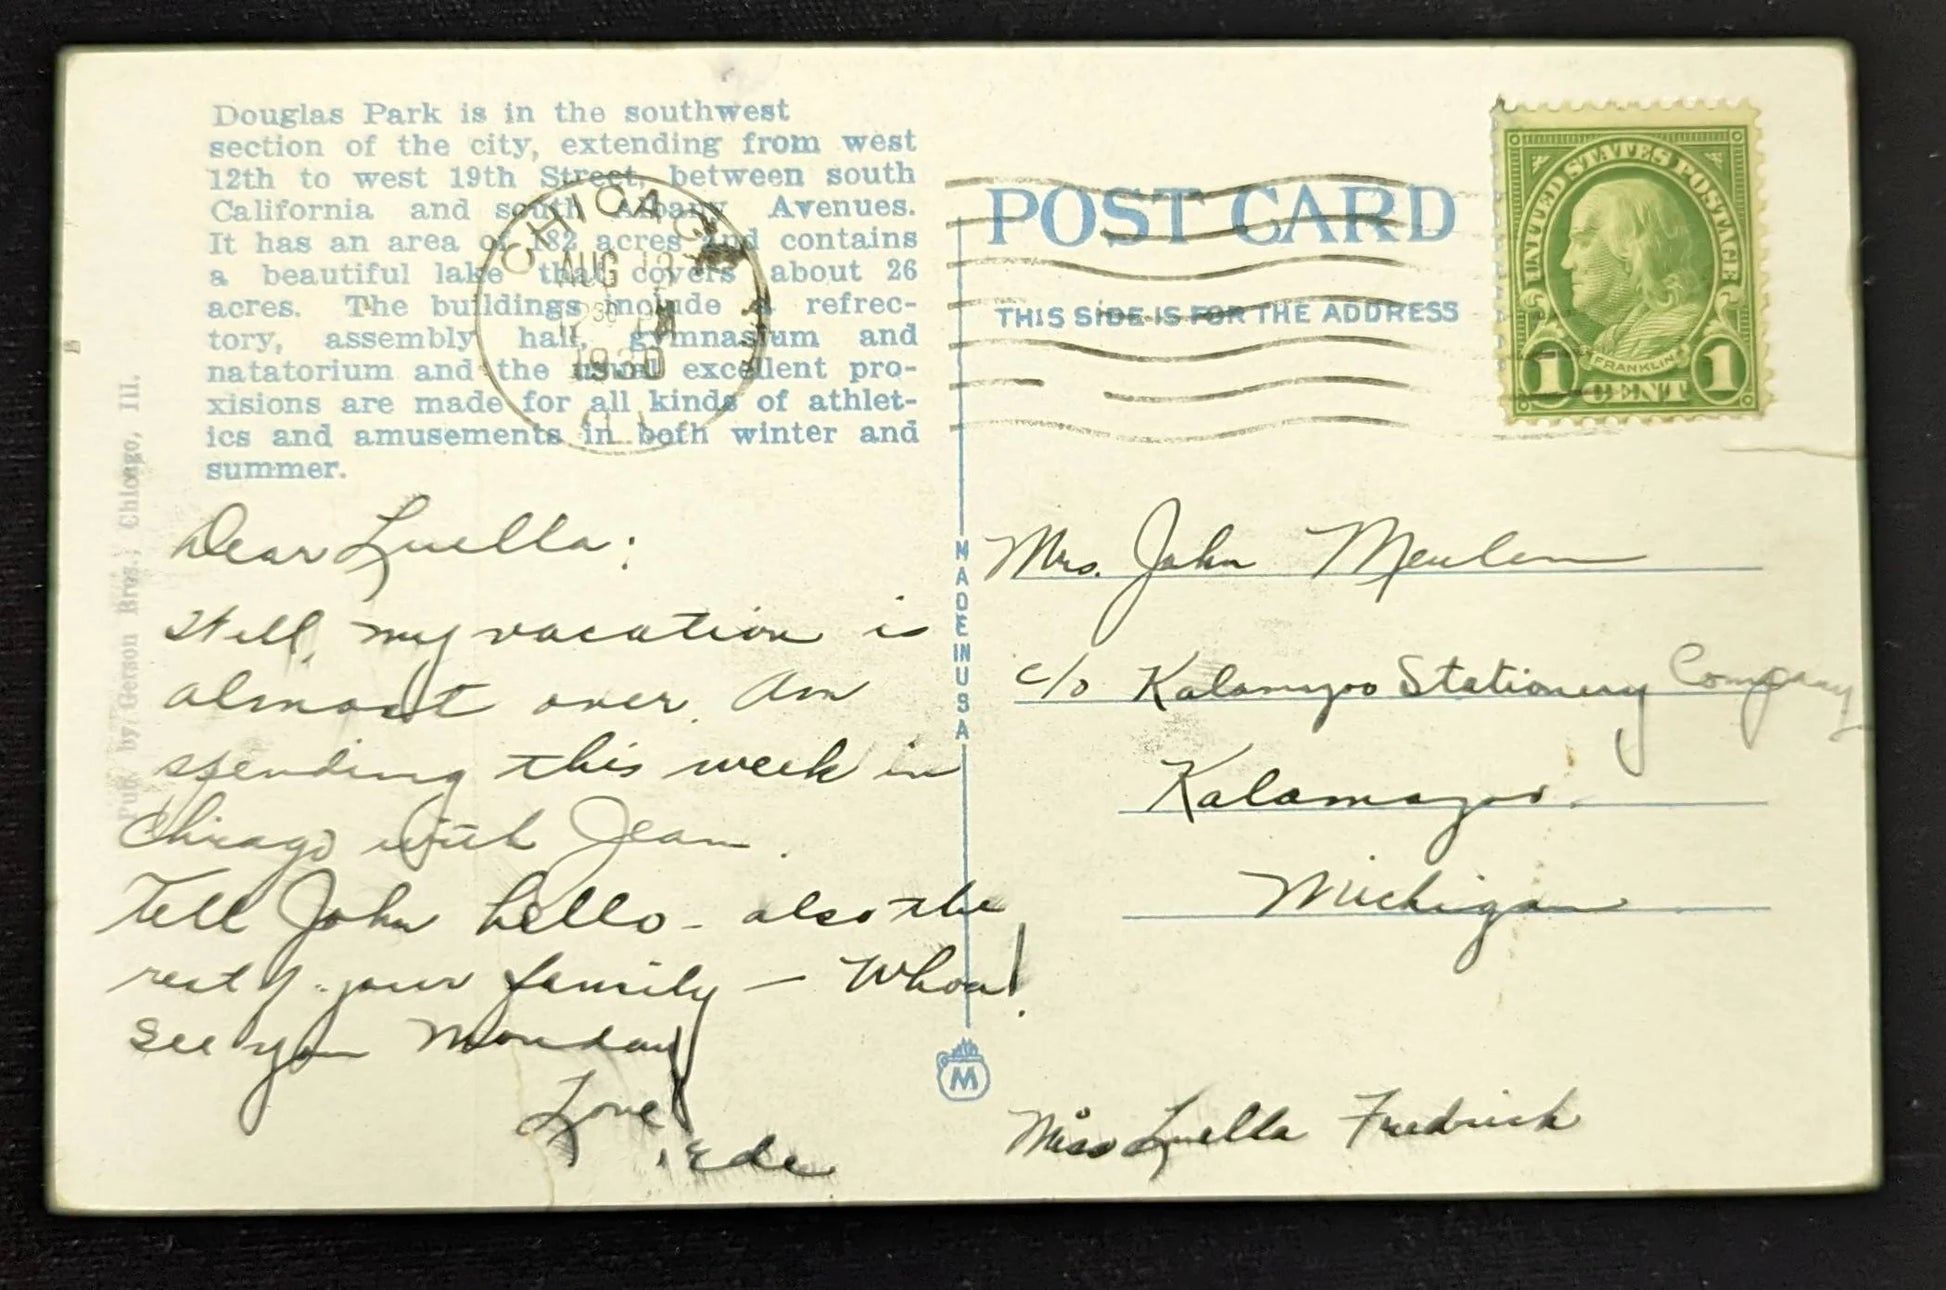 Douglas Park is in the southwest
section of the city, extending from west
12th to west 19th Street, between south
California and south Albany Avenues.
It has an area of 182 acres and contains
a beautiful lake that covers about 26
acres. The buildings include a refrec-
tory, assembly hall, gymnasium and
natatorium and the usual excellent pro-
xisions are made for all kinds of athlet-
ics and amusements in both winter and
summer.
Pub. by Gerson Bros., Chicago, Ill.
CHICAGO
AUG 13
1930
ILL.
Dear Luella:
Well, my vacation is
almost over. Am
spending this week in
Chicago with Jean.
Tell John hello - also the
rest of your family — Whoa!
See you Monday!
Love
MADE IN USA
M
POST CARD
THIS SIDE IS FOR THE ADDRESS
UNITED STATES POSTAGE
FRANKLIN
1 CENT 1
Mrs. John Meulen
c/o Kalamazoo Stationery Company
Kalamazoo.
Michigan
Miss Luella Fredrick